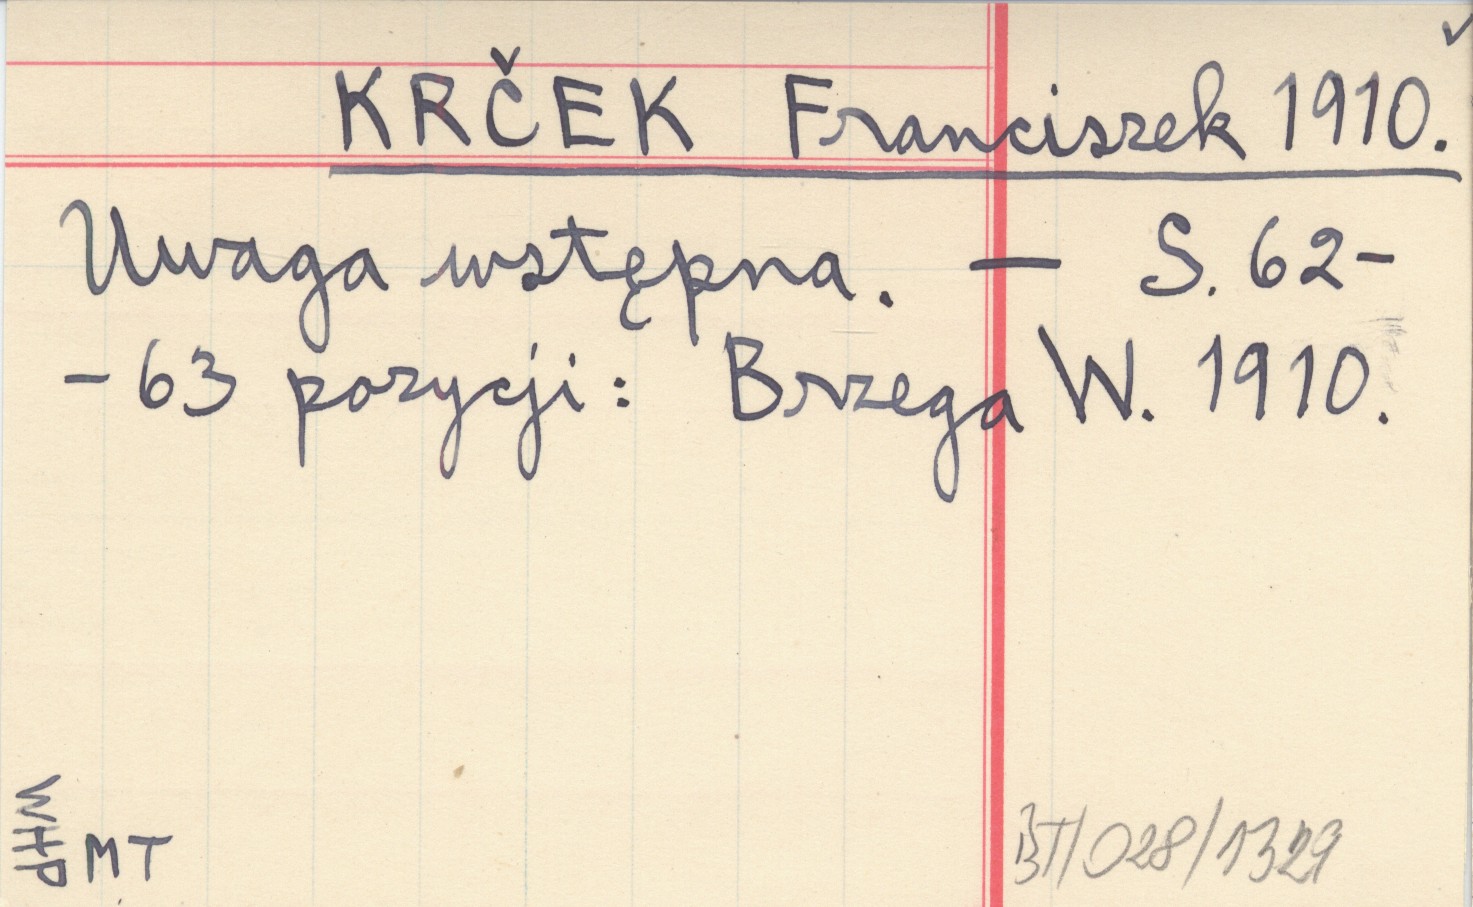 KRČEK Franciszek 1910.
Uwaga wstępna. — S. 62-
-63 pozycji: Brzega W. 1910.
WHP
MT
BT/028/1329